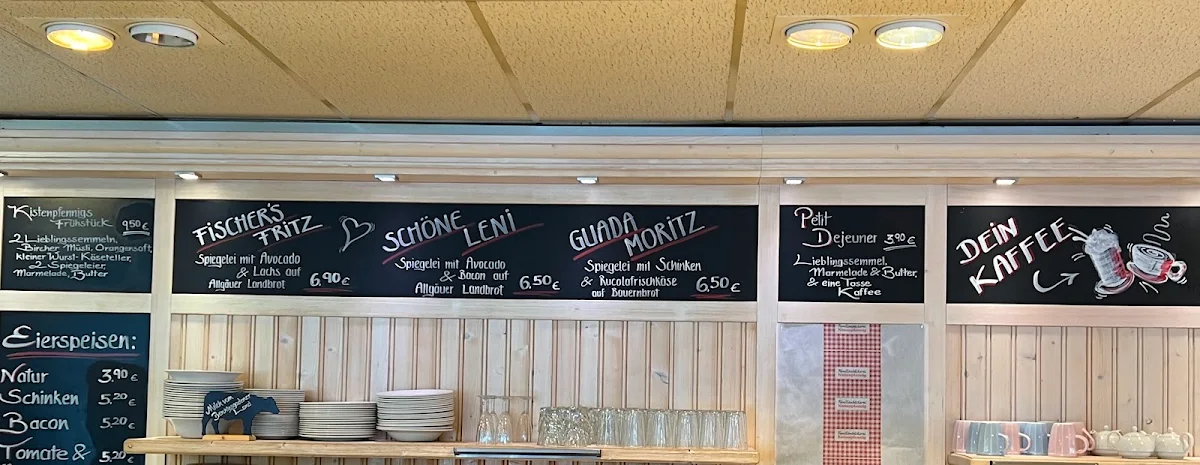 Kistenpfennigs
Frühstück 9.50 €
2 Lieblingssemmeln,
Bircher Müsli, Orangensaft,
kleiner Wurst-Käseteller,
2 Spiegeleier,
Marmelade, Butter
Eierspeisen:
Natur 3.90 €
Schinken 5,20 €
Bacon 5,20 €
Tomate & 5,20 €
FISCHER'S
FRITZ
Spiegelei mit Avocado
& Lachs auf
Allgäuer Landbrot 6,90 €
SCHÖNE
LENI
Spiegelei mit Avocado
& Bacon auf
Allgäuer Landbrot 6,50 €
GUADA
MORITZ
Spiegelei mit Schinken
& Rucolafrischkäse
auf Bauernbrot 6,50 €
Petit
Dejeuner 3,90 €
Lieblingssemmel,
Marmelade & Butter,
& eine Tasse
Kaffee
DEIN
KAFFEE
Milch vom
Land